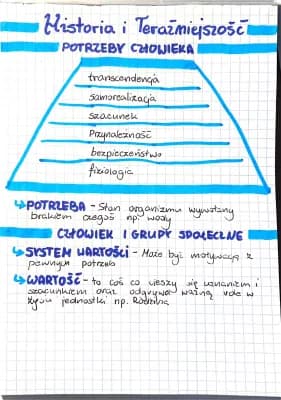 Historia i Teraźniejszość
POTRZEBY CZŁOWIEKA
transcendencja
samorealizacja
szacunek
Przynależność
bezpieczeństwo
fizjologia
POTRZEBA - Stan organizmu wywołany
brakiem czegoś np. wody
CZŁOWIEK I GRUPY SPOŁECZNE
SYSTEM WARTOŚCI - Może być motywacją z
pewnym potrzeb
WARTOŚĆ - to coś co cieszy się uznaniem i
szacunkiem oraz odgrywa ważną role w
życiu jednostki np. Rodzina